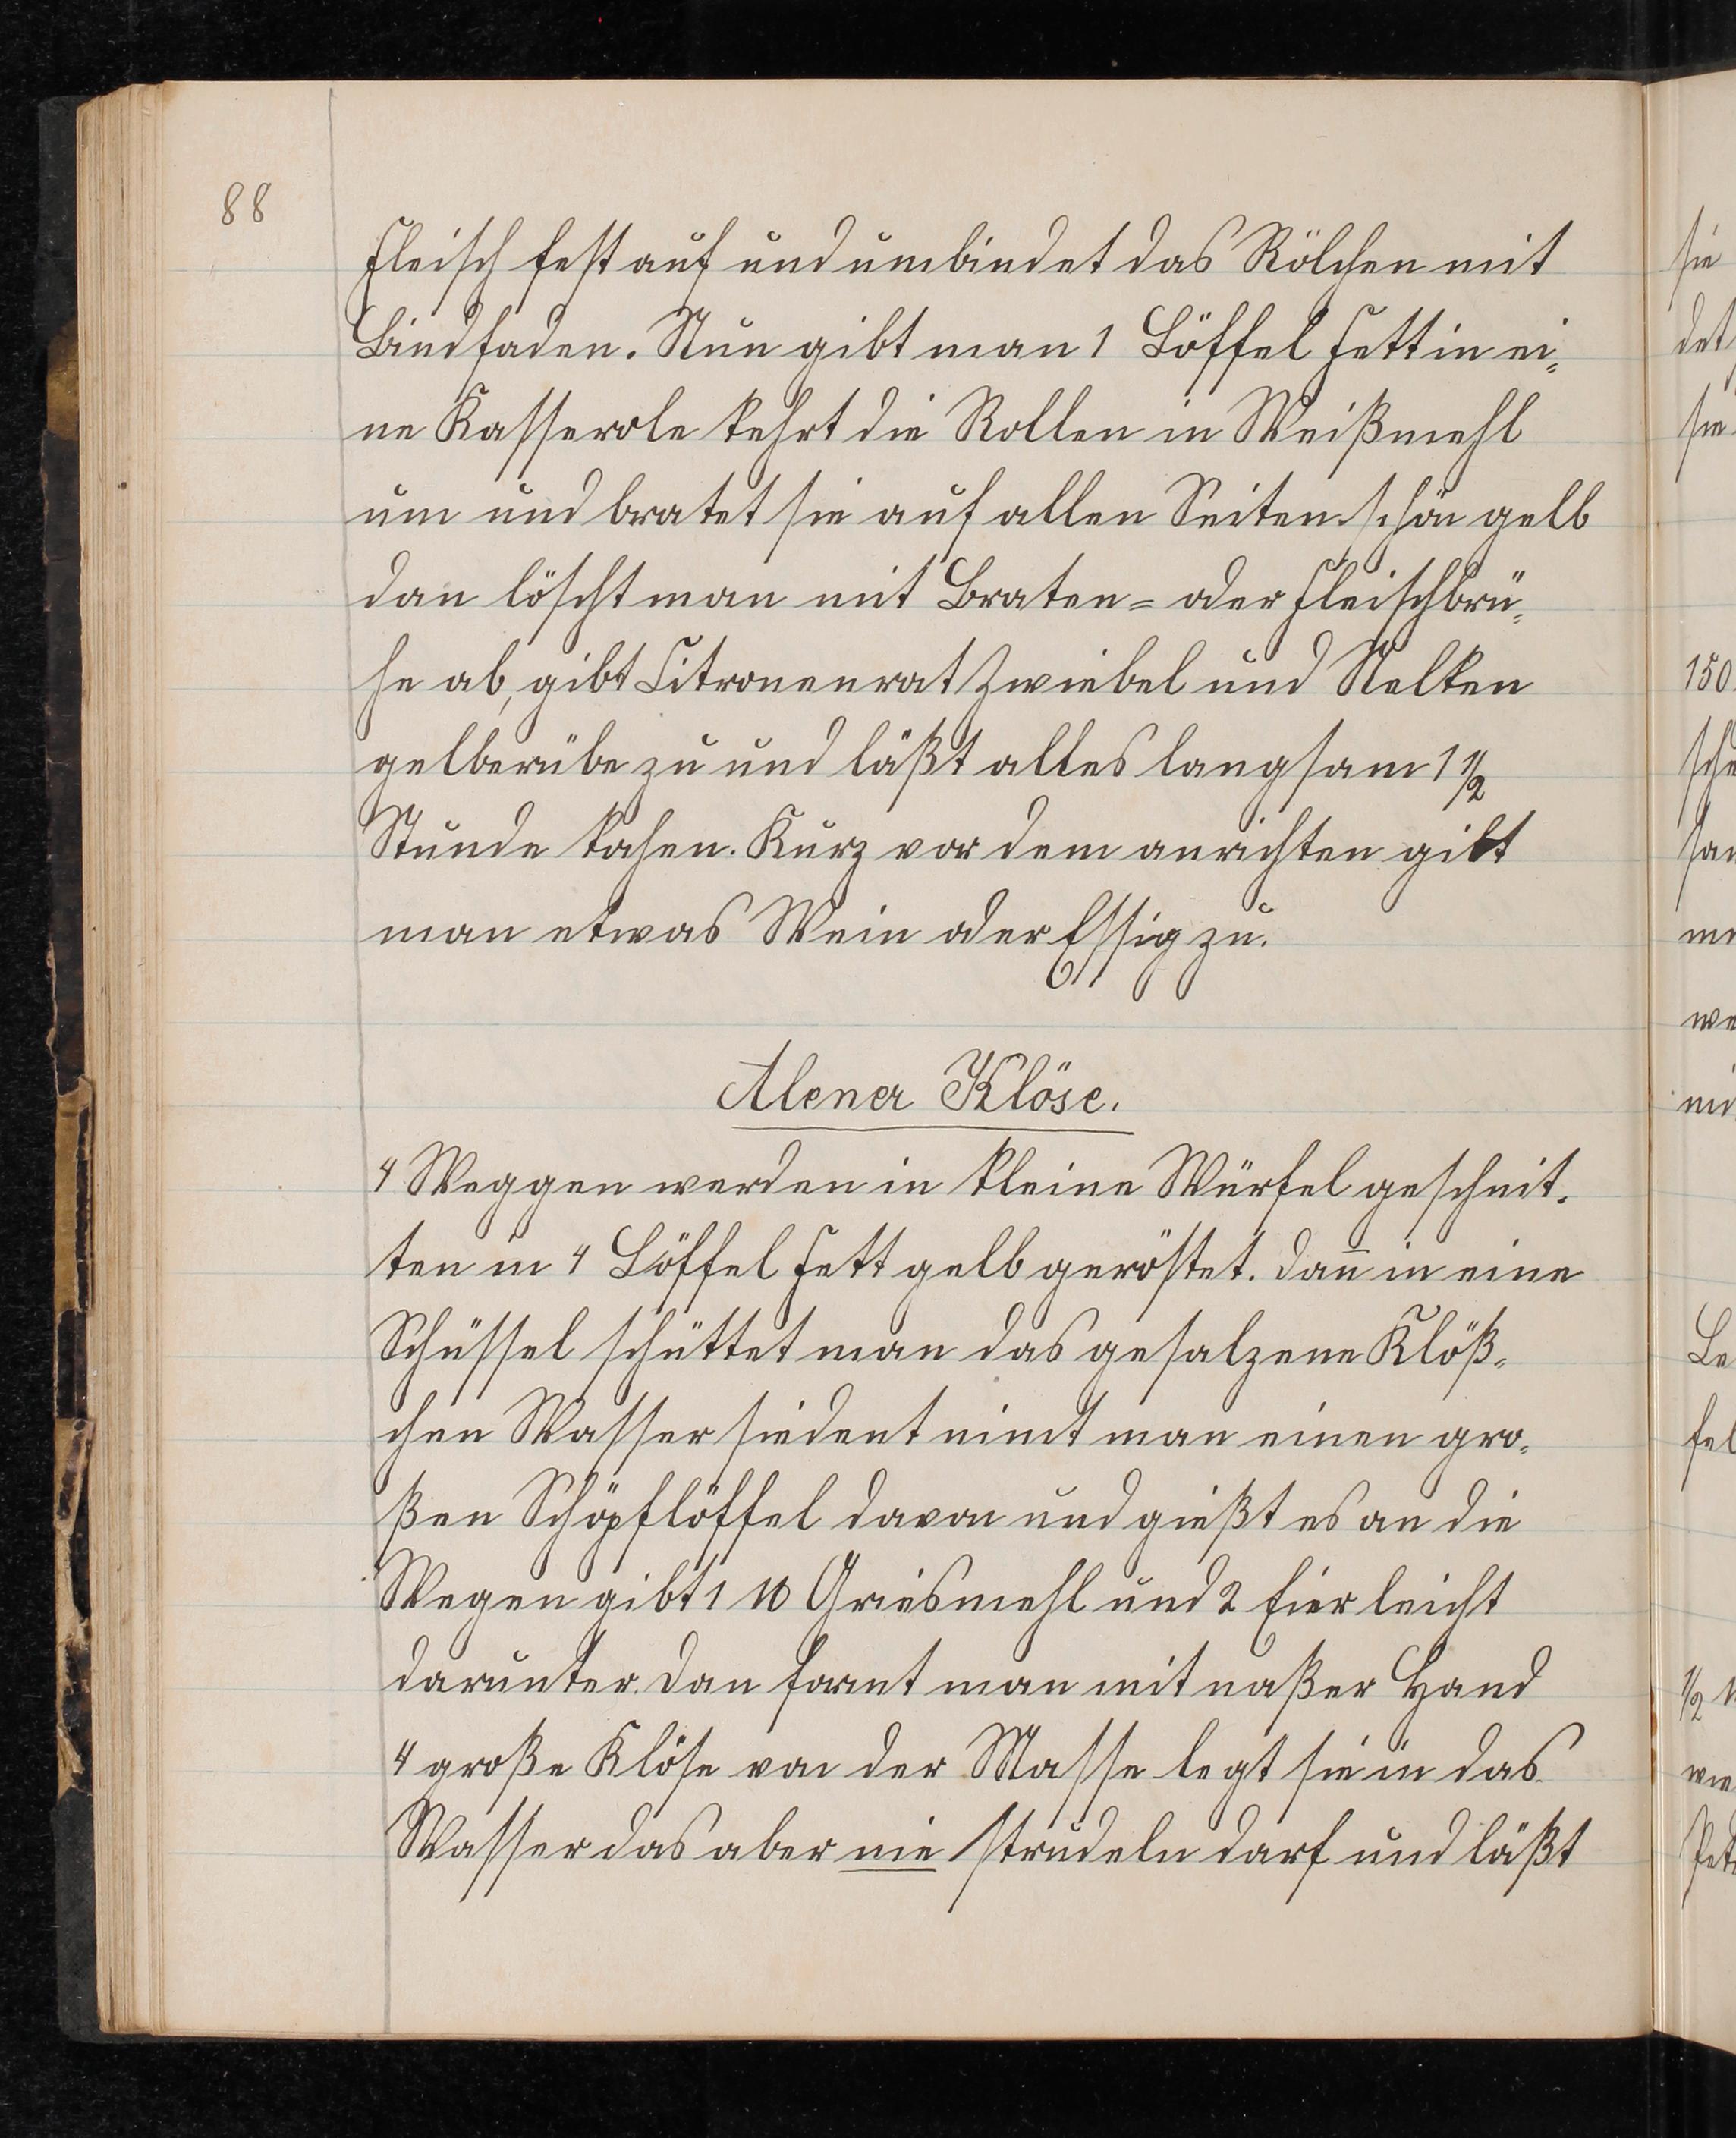 88
Fleisch fest auf und umbindet das Rölchen mit
Bindfaden. Nun gibt man 1 Löffel Fett in ei=
ne Kasserole kehrt die Rollen in Weißmehl
um und bratet sie auf allen Seiten schön gelb
dan löscht man mit Braten= oder Fleischbrü=
he ab, gibt Citronenrat Zwiebel und Nelken
gelberübe zu und läßt alles langsam 1 1/2
Stunde kochen. Kurz vor dem anrichten gibt
man etwas Wein oder Essig zu.
Alener Klöse.
4 Weggen werden in kleine Würfel geschnit.
ten in 4 Löffel Fett gelb geröstet. Dan̄ in eine
Schüssel schüttet man das gesalzene Klöß=
chen Wasser siedent nimt man einen gro=
ßen Schöpflöffel davon und gießt es an die
Wegen gibt 1 ℔ Griesmehl und 2 Eier leicht
darunter. Dan formt man mit naßer Hand
4 große Klöse von der Masse legt sie in das
Wasser das aber nie strudeln darf und läßt
sie
det
sie
150
sche
we
Le
fel
1/2
wie
Pet